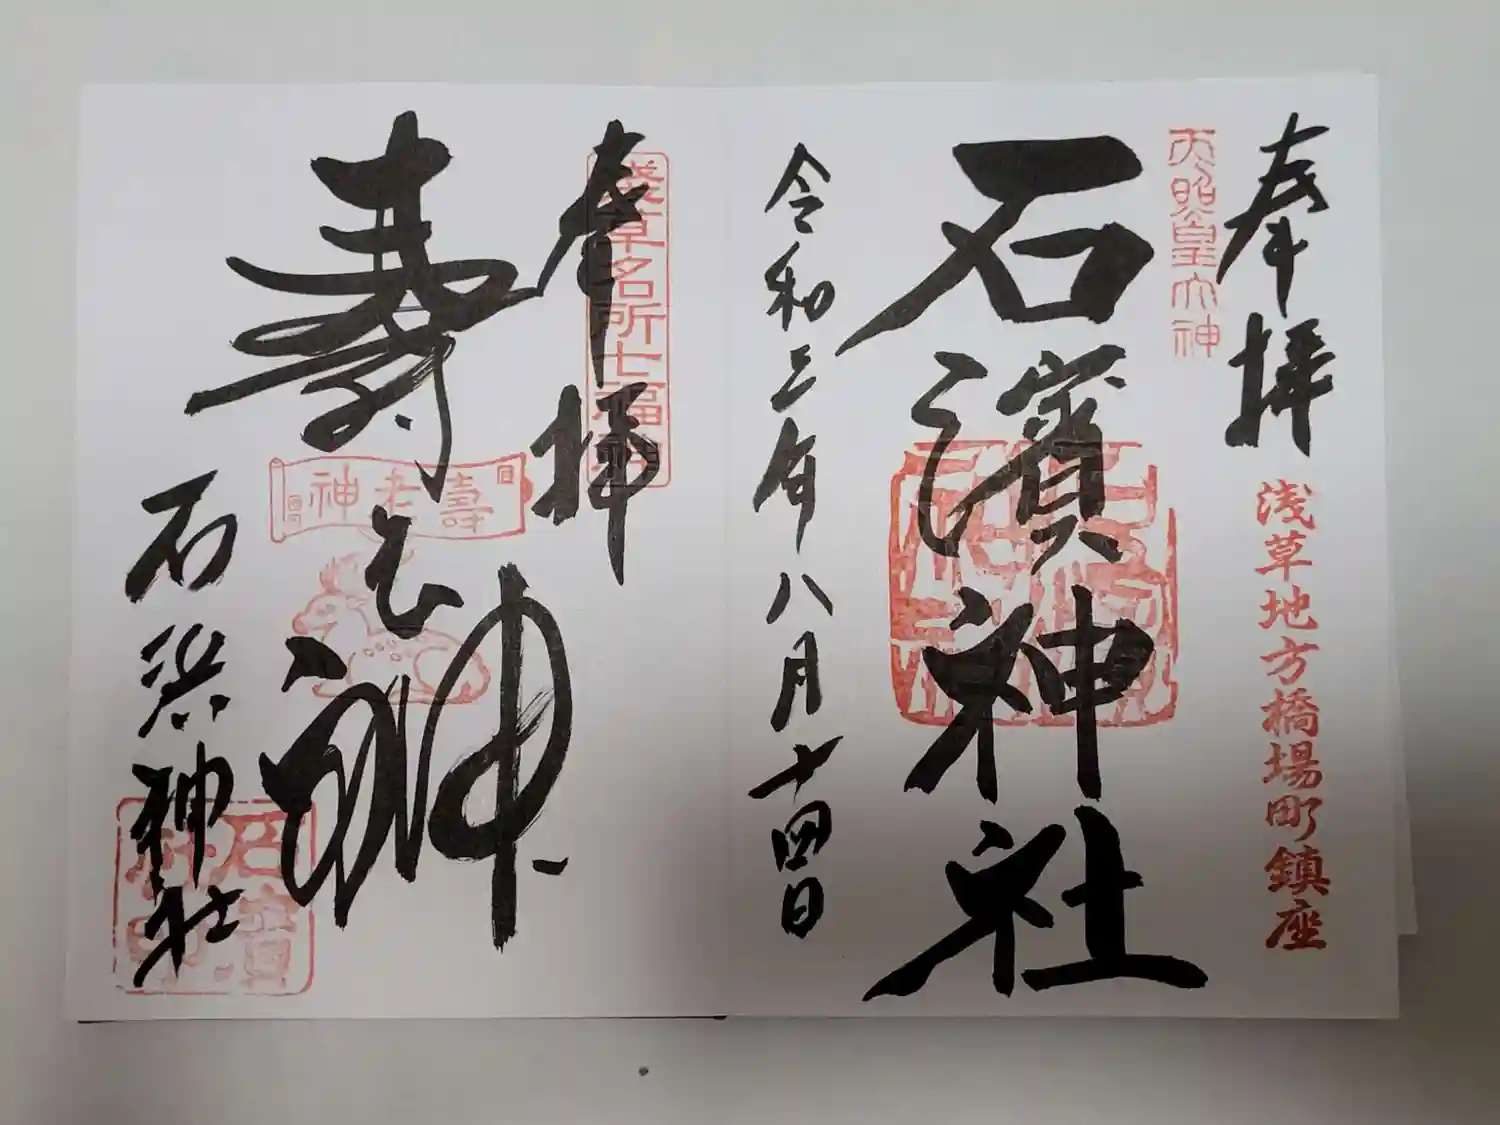 奉拝
天照皇大神
浅草地方橋場町鎮座
石濱神社
令和三年八月十四日
奉拝
淺草名所七福神
寿老神
壽老神
石浜神社